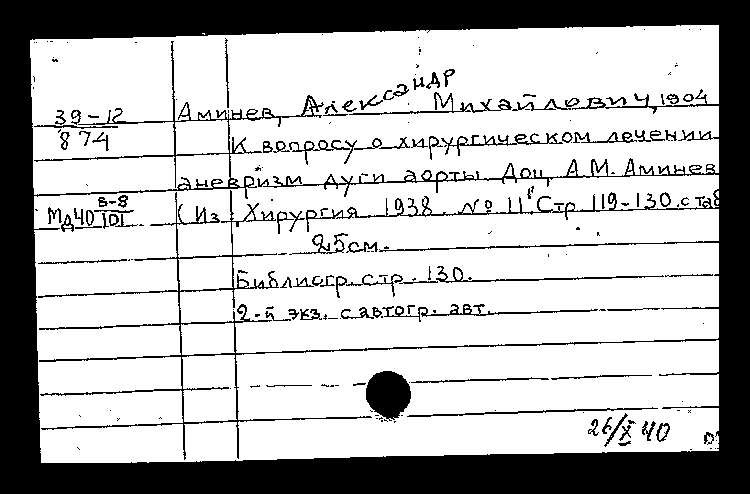 39-12
874
Аминев, Александр Михайлович, 1904
К вопросу о хирургическом лечении
аневризм дуги аорты Доц. А.М. Аминев
Мд40 В-8
101
(Из: "Хирургия 1938. № 11" Стр 119-130. с таб
25см.
Библиогр. стр. 130.
2-й экз. с автогр. авт.
26/X 40